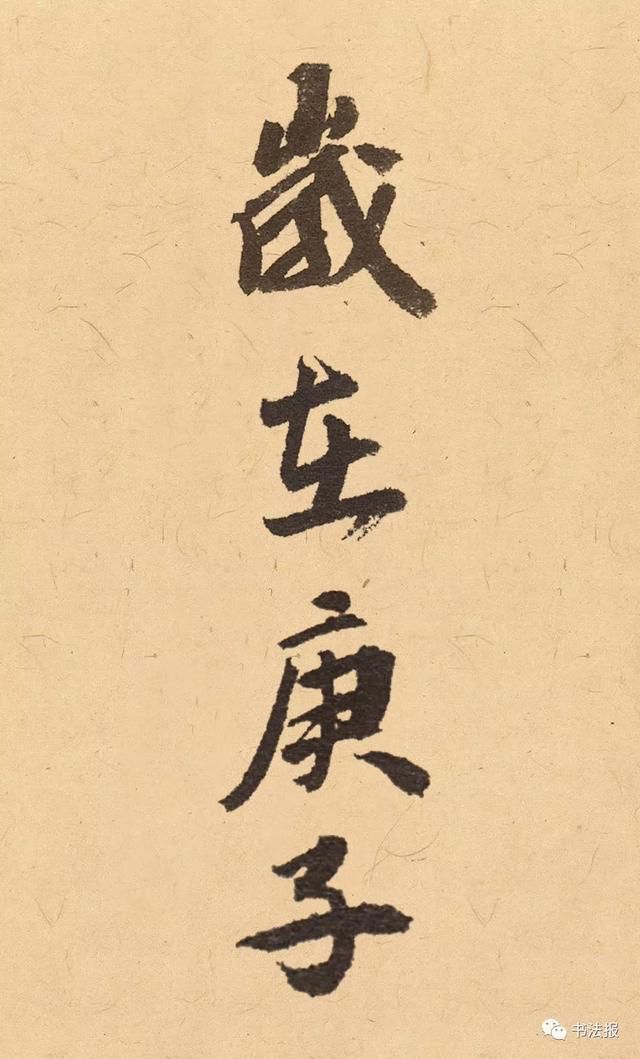 歲在庚子
书法报